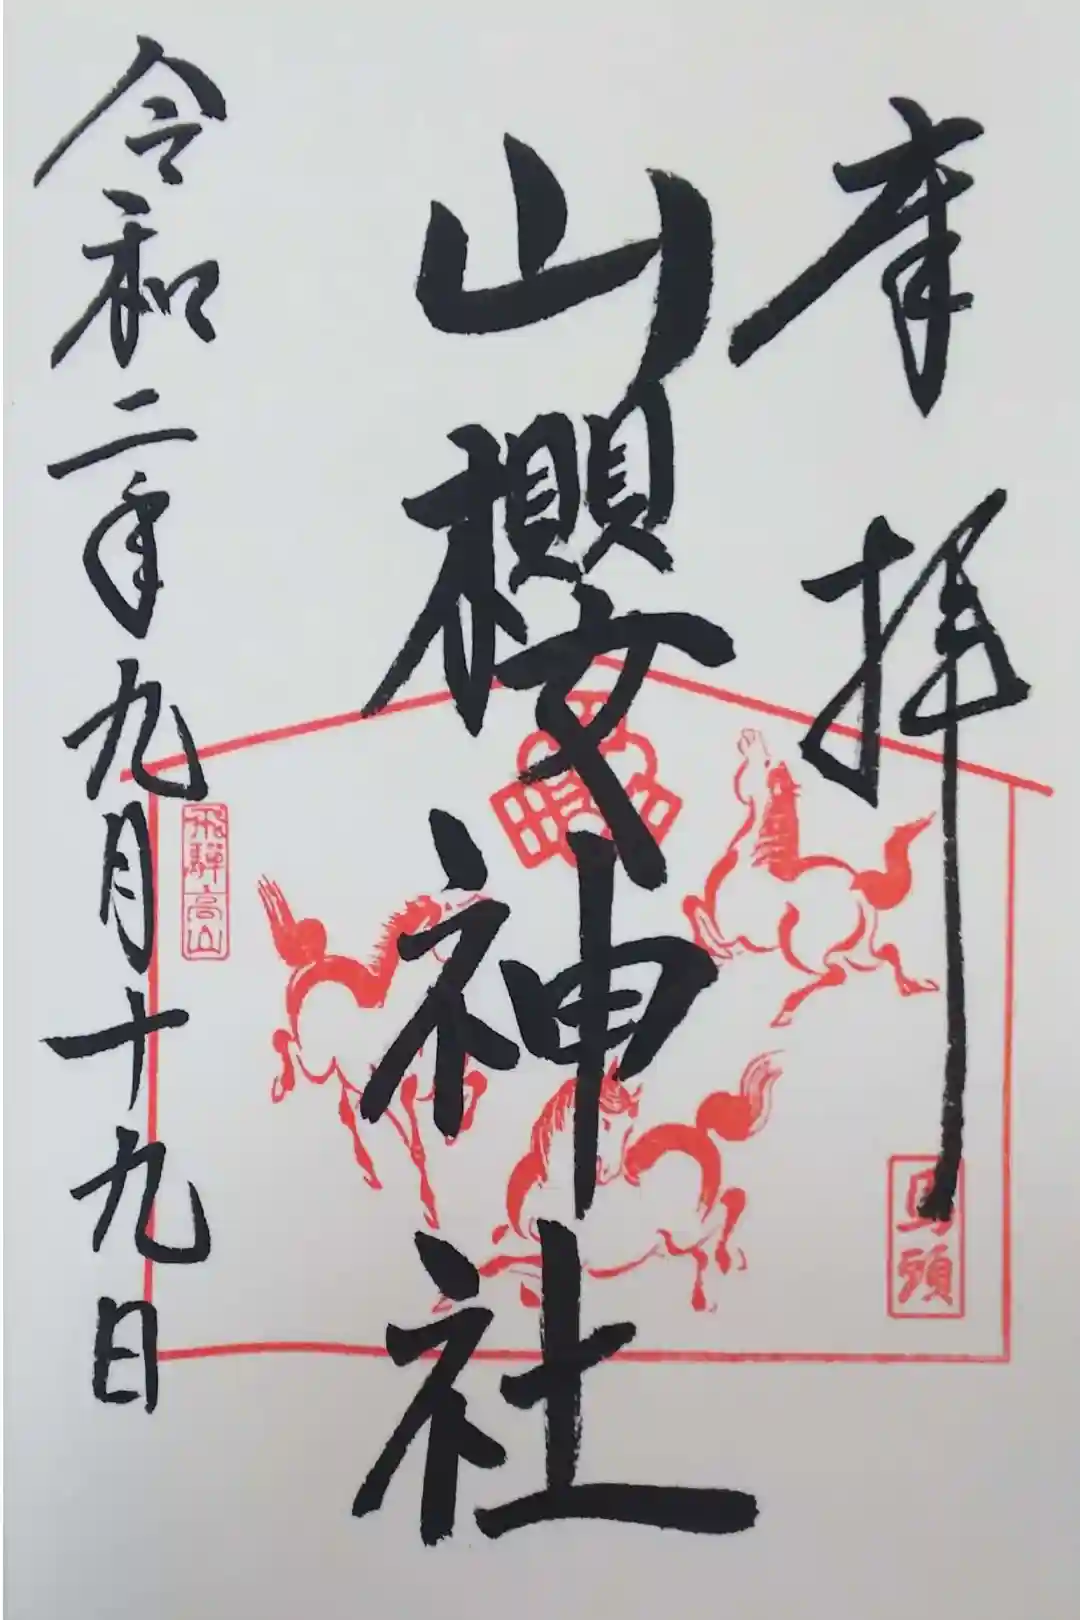 奉拝
馬頭
山櫻神社
飛騨高山
令和二年九月十九日